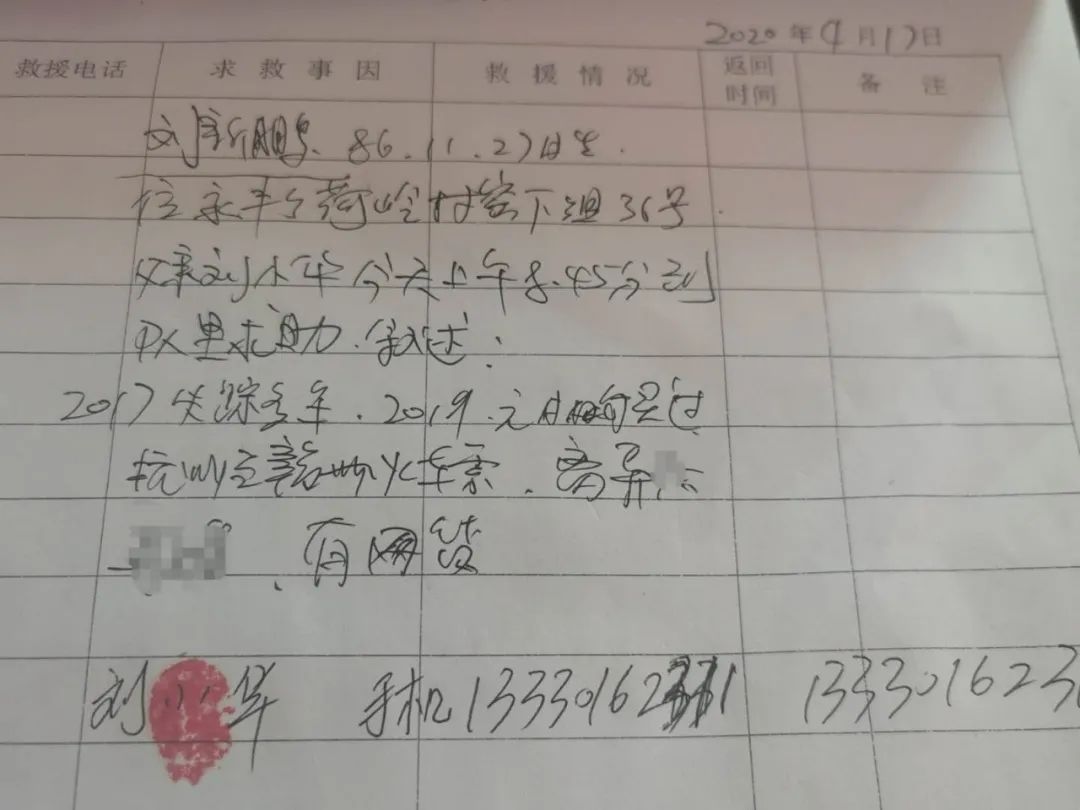 2020年4月17日
救援电话 求救事因 救援情况 返回时间 备注
刘新鹏、86.11.27日生.
住永丰乡荷岭村窑下组36号.
父亲刘小华今天上午8.45分到
队里求助.叙述:
2017失踪多年.2019.元月购买过
杭州至赣州火车票.离异
有网贷
刘小华 手机 1333016
133301623